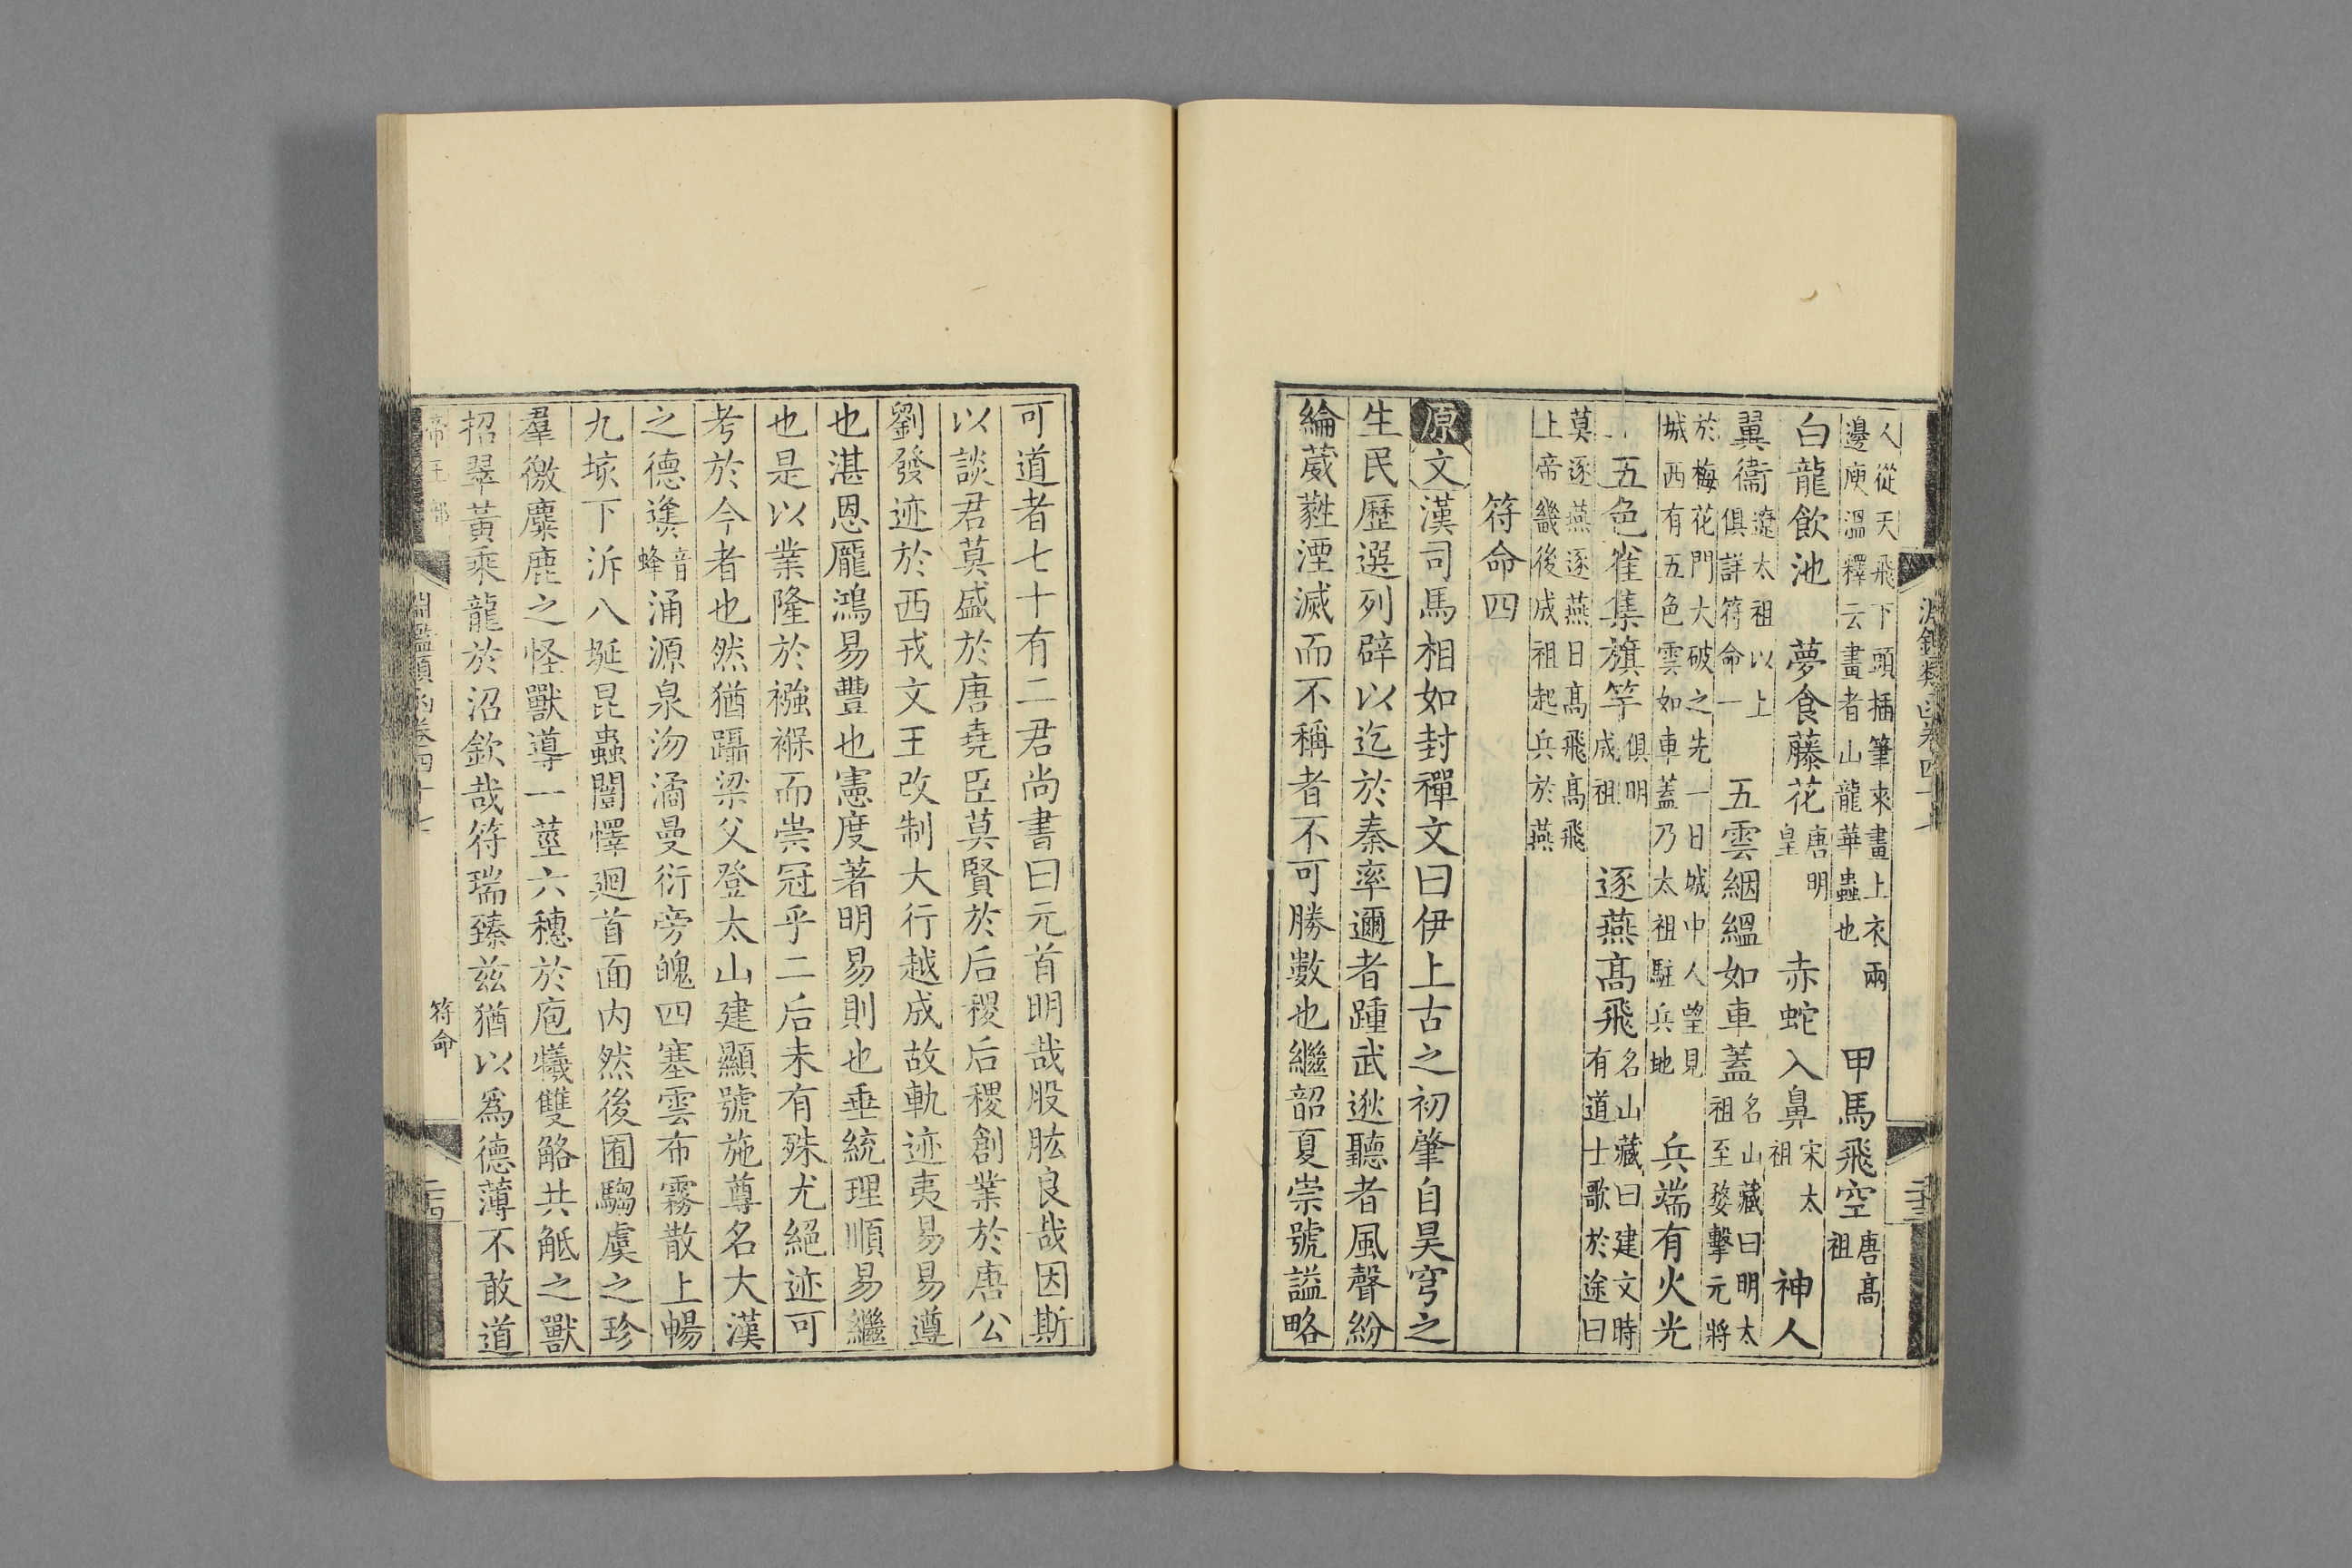 人從天飛下頭插筆來畫上衣兩
邊庾溫釋云畫者山龍華蟲也
甲馬飛空
唐高
祖
白龍飲池
夢食藤花
唐明
皇
赤蛇入鼻
宋太
祖
神人
翼衞
遼太祖以上
俱詳符命一
五雲絪縕如車蓋
名山藏曰明太
祖至婺擊元將
於梅花門大破之先一日城中人望見
城西有五色雲如車蓋乃太祖駐兵地
兵端有火光
五色雀集旗竿
俱明
成祖
逐燕高飛
名山藏曰建文時
有道士歌於途曰
莫逐燕逐燕日高飛高飛
上帝畿後成祖起兵於燕
符命四
原文漢司馬相如封禪文曰伊上古之初肇自昊穹之
生民歷選列辟以迄於秦率邇者踵武逖聽者風聲紛
綸葳蕤湮滅而不稱者不可勝數也繼韶夏崇號謚略
可道者七十有二君尚書曰元首明哉股肱良哉因斯
以談君莫盛於唐堯臣莫賢於后稷后稷創業於唐公
劉發迹於西戎文王改制大行越成故軌迹夷易易遵
也湛恩厖鴻易豐也憲度著明易則也垂統理順易繼
也是以業隆於襁褓而崇冠乎二后未有殊尤絕迹可
考於今者也然猶躡梁父登太山建顯號施尊名大漢
之德㷭
音
蜂
涌源泉沕潏曼衍旁魄四塞雲布霧散上暢
九垓下泝八埏昆蟲闓懌迴首面內然後囿騶虞之珍
羣徼麋鹿之怪獸導一莖六穗於庖犧雙觡共觝之獸
招翠黃乘龍於沼欽哉符瑞臻兹猶以爲德薄不敢道
帝王部
淵鑑類函卷四十七
符命
二十四